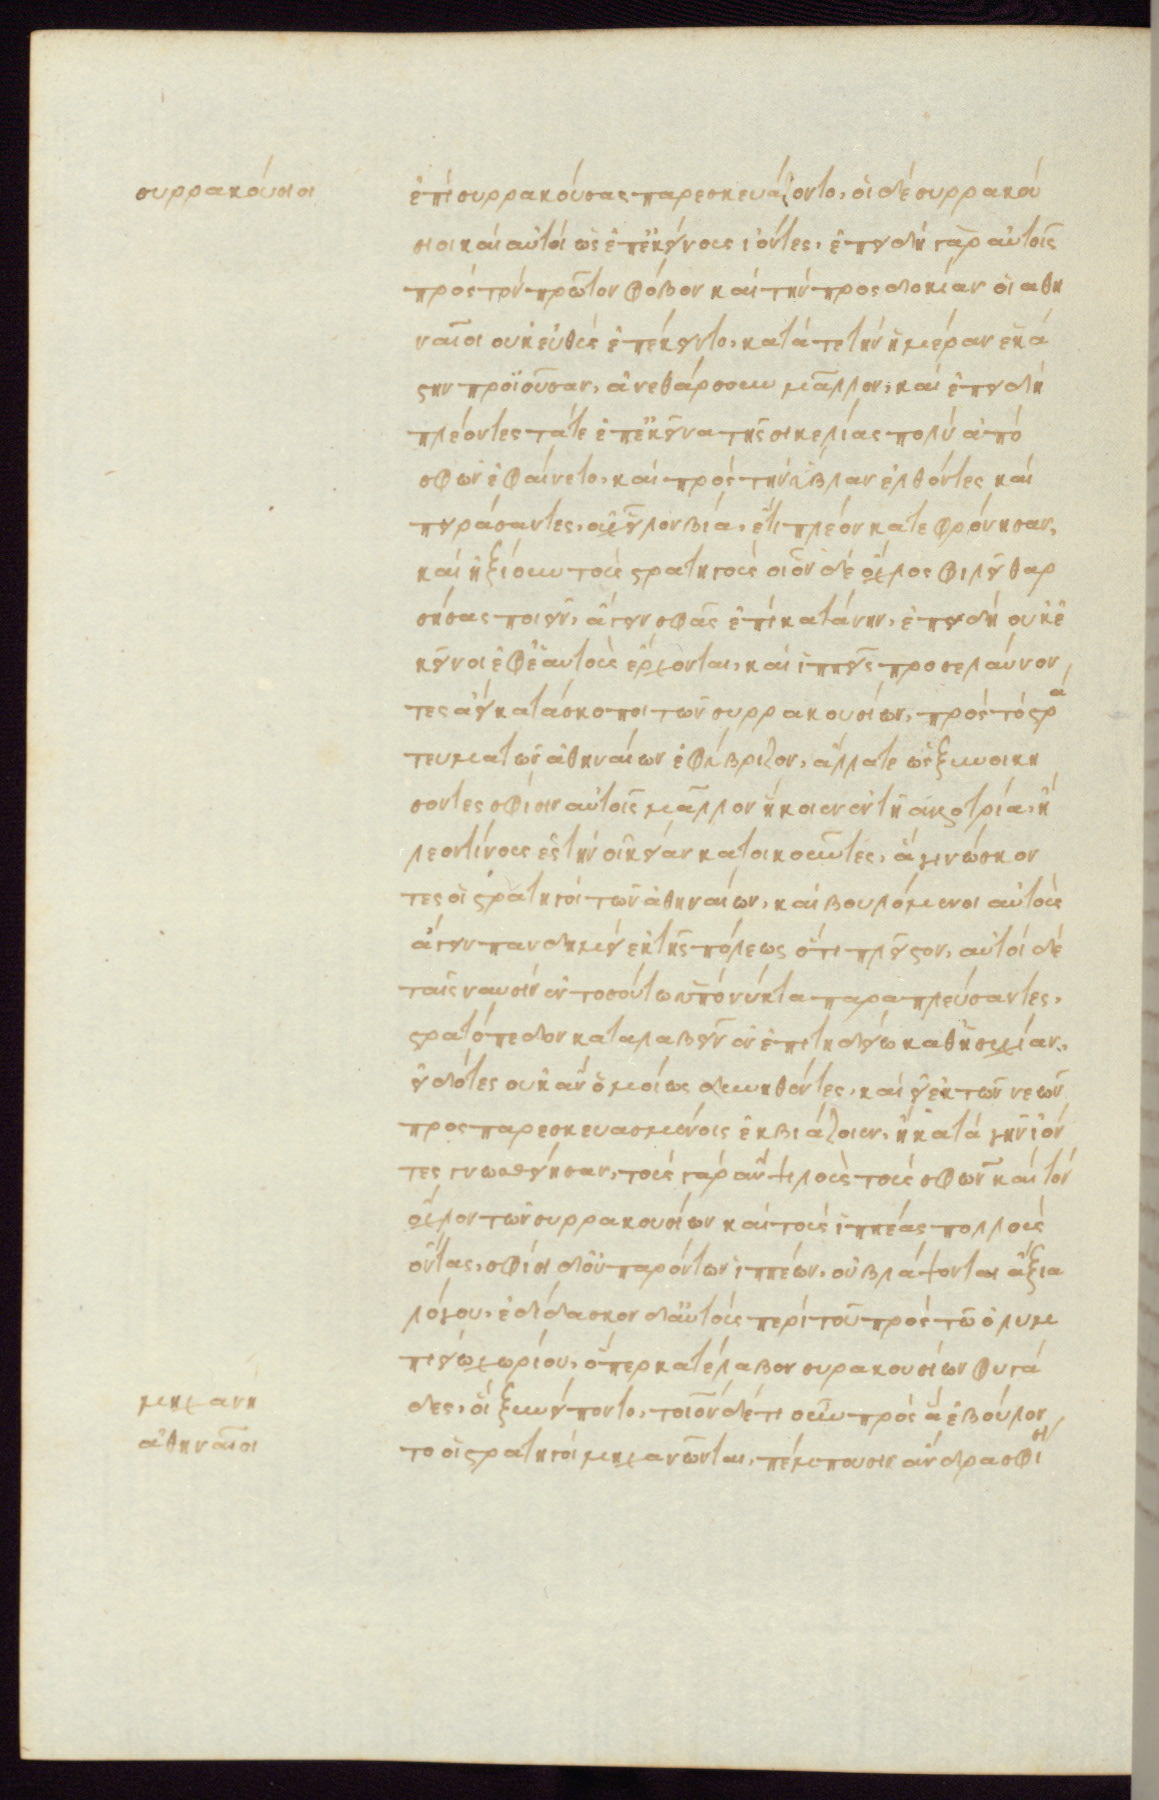 συρρακούσιοι
ἐπὶ συρρακούσας παρεσκευάζοντο, οἱ δὲ συρρακού
σιοι καὶ αὐτοὶ ὡς ἐπ' ἐκείνους ἰόντες. ἐπειδὴ γὰρ αὐτοῖς
πρὸς τὸν πρῶτον φόβον καὶ τὴν προσδοκίαν οἱ ἀθη
ναῖοι οὐκ εὐθὺς ἐπέκειντο, κατά τε τὴν ἡμέραν ἑκά
στην προϊοῦσαν, ἀνεθάρσουν μᾶλλον, καὶ ἐπειδὴ
πλέοντες τά τε ἐπ' ἐκεῖνα τῆς σικελίας πολὺ ἀπὸ
σφῶν ἐφαίνετο, καὶ πρὸς τὴν ὕβλαν ἐλθόντες καὶ
πειράσαντες, οὐχ εἷλον βία, ἔτι πλέον κατεφρόνησαν,
καὶ ἠξίουν τοὺς στρατηγοὺς οἷον δὲ ὄχλος φιλεῖ θαρ
σήσας ποιεῖν, ἄγειν σφᾶς ἐπὶ κατάνην, ἐπειδὴ οὐκ ἐ
κεῖνοι ἐφ' ἑαυτοὺς ἔρχονται, καὶ ἱππεῖς προσελαύνον
τες ἀεὶ κατάσκοποι τῶν συρρακουσίων, πρὸς τὸ στρά
τευμα τῶν ἀθηναίων ἐφύβριζον, ἄλλα τε ὡς ξυνοικη
σοντες σφίσιν αὐτοῖς μᾶλλον ἥκοιεν ἐν τῆ ἀλλοτρία, ἢ
λεοντίνους ἐς τὴν οἰκείαν κατοικοῦντες, ἃ γινώσκον
τες οἱ στρατηγοὶ τῶν ἀθηναίων, καὶ βουλόμενοι αὐτοὺς
ἄγειν πανδημεὶ ἐκ τῆς πόλεως ὅτι πλεῖστον, αὐτοὶ δὲ
ταῖς ναυσὶν ἐν τοσούτω ὑπὸ νύκτα παραπλεύσαντες,
στρατόπεδον καταλαβεῖν ἐν ἐπιτηδείω καθ' ἡσυχίαν,
εἰδότες οὐκ ἂν ὁμοίως δυνηθέντες, καὶ εἰ ἐκ τῶν νεῶν
προς παρεσκευασμένους ἐκβιάζοιεν, ἢ κατὰ γῆν ἰόν
τες γνωσθείησαν, τοὺς γὰρ ἂν ψιλοὺς τοὺς σφῶν καὶ τὸν
ὄχλον τῶν συρρακουσίων καὶ τοὺς ἱππέας πολλοὺς
ὄντας, σφίσι δ' οὐ παρόντων ἱππέων, οὐ βλάψονται ἄξια
λόγου, ἐδίδασκον δ' αὐτοὺς περὶ τοῦ πρὸς τῶ ὀλυμ
πιείω χωρίου, ὅπερ κατέλαβον συρακουσίων φυγά
μηχανὴ
δες, οἳ ξυνείποντο, τοιόνδέ τι οὖν πρὸς ἃ ἐβούλον
ἀθηναῖοι
το οἱ στρατηγοὶ μηχανῶνται, πέμπουσιν ἄνδρα σφίσιν